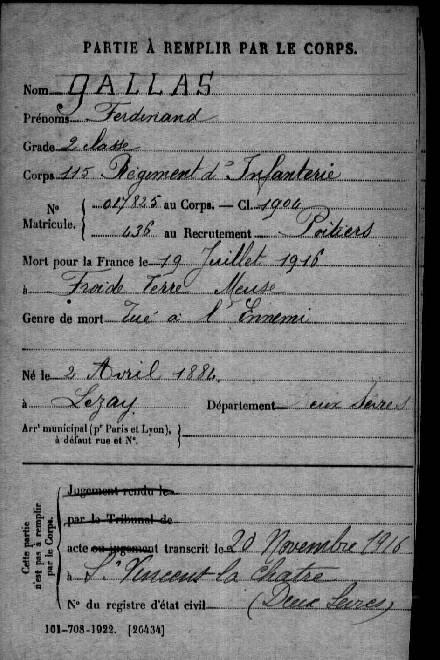 PARTIE À REMPLIR PAR LE CORPS.
Nom GALLAS
Prénoms Ferdinand
Grade 2 classe
Corps 115 Régiment d'Infanterie
Nº Matricule. { 017825 au Corps. — Cl. 1904
436 au Recrutement Poitiers
Mort pour la France le 19 Juillet 1916
à Froide Terre Meuse
Genre de mort Tué à l'Ennemi
Né le 2 Avril 1884
à Lezay Département Deux Sèvres
Arrt municipal (pr Paris et Lyon), à défaut rue et Nº. }
Cette partie n'est pas à remplir par le Corps.
Jugement rendu le
par le Tribunal de
acte ou jugement transcrit le 20 Novembre 1916
à St Vincent la Chatre
Nº du registre d'état civil (Deux Sevres)
161-708-1922. [26434]